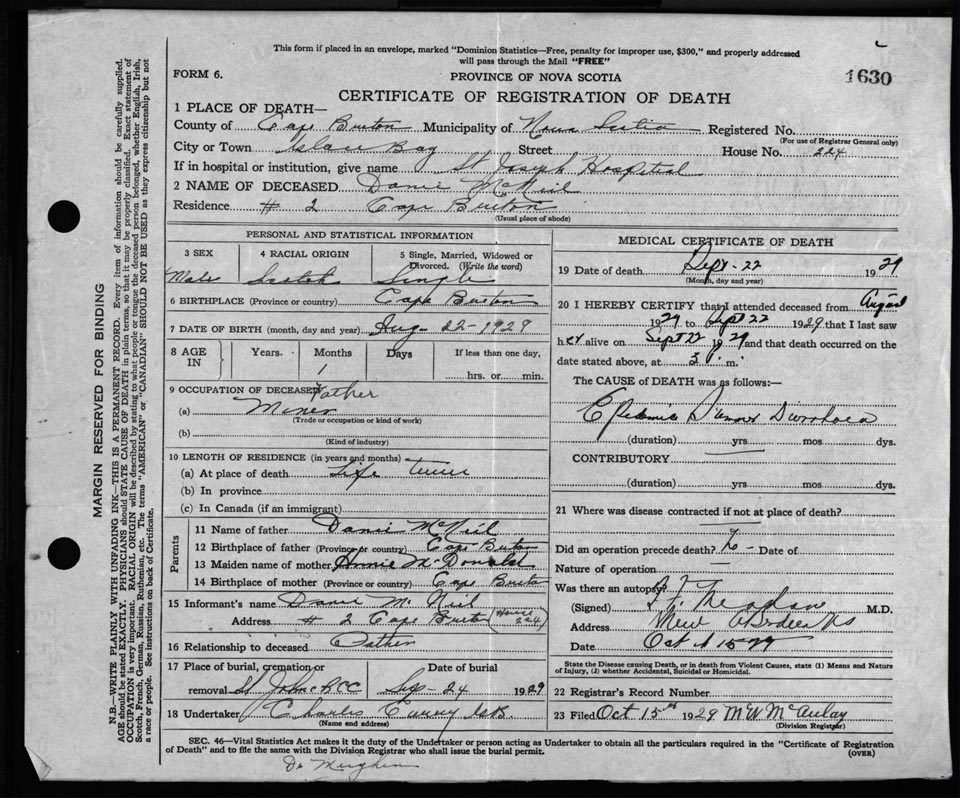 This form if placed in an envelope, marked "Dominion Statistics—Free, penalty for improper use, $300," and properly addressed
will pass through the Mail "FREE"
FORM 6.
PROVINCE OF NOVA SCOTIA
1630
CERTIFICATE OF REGISTRATION OF DEATH
1 PLACE OF DEATH—
County of Cape Breton Municipality of Nova Scotia Registered No.
(For use of Registrar General only)
City or Town Glace Bay Street House No. 224
If in hospital or institution, give name St Joseph Hospital
2 NAME OF DECEASED McNeil
Residence # 2 Cape Breton
(Usual place of abode)
PERSONAL AND STATISTICAL INFORMATION
3 SEX
4 RACIAL ORIGIN
5 Single, Married, Widowed or
Divorced. (Write the word)
Male Scotch Single
6 BIRTHPLACE (Province or country) Cape Breton
7 DATE OF BIRTH (month, day and year) Aug- 22-1929
8 AGE
IN
Years.
Months
Days
If less than one day,
1
hrs. or min.
9 OCCUPATION OF DECEASED Father
(a) Miner
(Trade or occupation or kind of work)
(b)
(Kind of industry)
10 LENGTH OF RESIDENCE (in years and months)
(a) At place of death Life time
(b) In province
(c) In Canada (if an immigrant)
Parents
11 Name of father McNeil
12 Birthplace of father (Province or country) Cape Breton
13 Maiden name of mother Annie McDonald
14 Birthplace of mother (Province or country) Cape Breton
15 Informant's name Mc Neil
Address # 2 Cape Breton (House 224)
16 Relationship to deceased Father
17 Place of burial, cremation or
removal St John
Date of burial
Sep- 24 1929
18 Undertaker Charles Curry G.B.
(Name and address)
MEDICAL CERTIFICATE OF DEATH
19 Date of death Sept-22 1929
(Month, day and year)
20 I HEREBY CERTIFY that I attended deceased from August
1929 to Sept 22 1929 that I last saw
her alive on Sept 22 1929 and that death occurred on the
date stated above, at 3 P. m.
The CAUSE of DEATH was as follows:—
Epidemic Summer Diarrhoea
(duration) yrs mos dys.
CONTRIBUTORY
(duration) yrs mos dys.
21 Where was disease contracted if not at place of death?
Did an operation precede death? No - Date of
Nature of operation
Was there an autopsy?
(Signed) M.D.
Address New Aberdeen NS
Date Oct 15-29
State the Disease causing Death, or in death from Violent Causes, state (1) Means and Nature
of Injury, (2) whether Accidental, Suicidal or Homicidal.
22 Registrar's Record Number
23 Filed Oct 15th 1929 McAulay
(Division Registrar)
SEC. 46—Vital Statistics Act makes it the duty of the Undertaker or person acting as Undertaker to obtain all the particulars required in the "Certificate of Registration
of Death" and to file the same with the Division Registrar who shall issue the burial permit.
(OVER)
MARGIN RESERVED FOR BINDING
N.B.—WRITE PLAINLY WITH UNFADING INK—THIS IS A PERMANENT RECORD. Every item of information should be carefully supplied.
AGE should be stated EXACTLY. PHYSICIANS should STATE CAUSE OF DEATH in plain terms, so that it may be properly classified. Exact statement of
OCCUPATION is very important. RACIAL ORIGIN will be described by stating to what people or tongue the deceased person belonged, whether English, Irish,
Scotch, French, German, Russian, Ruthenian, etc. The terms "AMERICAN" or "CANADIAN" SHOULD NOT BE USED as they express citizenship but not
a race or people. See instructions on back of Certificate.